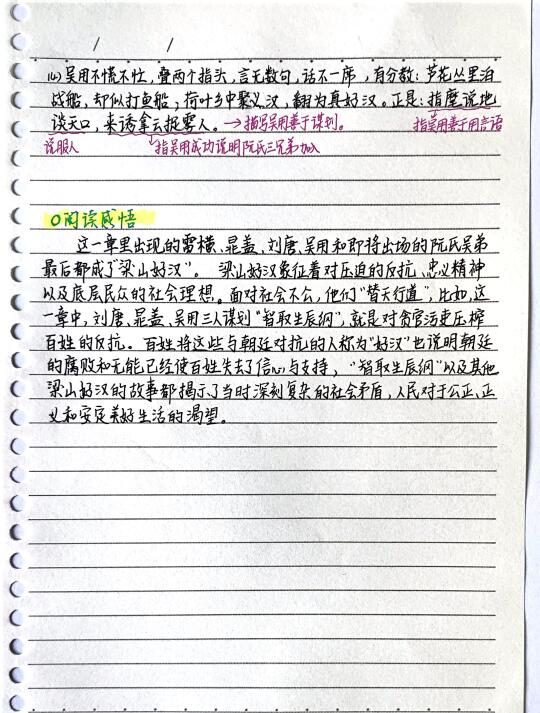 (14) 吴用不慌不忙，叠两个指头，言无数句，话不一席，有分教：芦花丛里泊
战船，却似打鱼船；荷叶乡中聚义汉，翻为真好汉。正是：指麾说地
谈天口，来诱拿云捉雾人。→描写吴用善于谋划。 指吴用善于用言语
说服人 指吴用成功说明阮氏三兄弟加入
○阅读感悟
这一章里出现的雷横、晁盖、刘唐、吴用和即将出场的阮氏兄弟
最后都成了"梁山好汉"。梁山好汉象征着对压迫的反抗、忠义精神
以及底层民众的社会理想。面对社会不公，他们"替天行道"，比如，这
一章中，刘唐、晁盖、吴用三人谋划"智取生辰纲"，就是对贪官污吏压榨
百姓的反抗。百姓将这些与朝廷对抗的人称为"好汉"也说明朝廷
的腐败和无能已经使百姓失去了信心与支持，"智取生辰纲"以及其他
梁山好汉的故事都揭示了当时深刻复杂的社会矛盾，人民对于公正、正
义和安定美好生活的渴望。